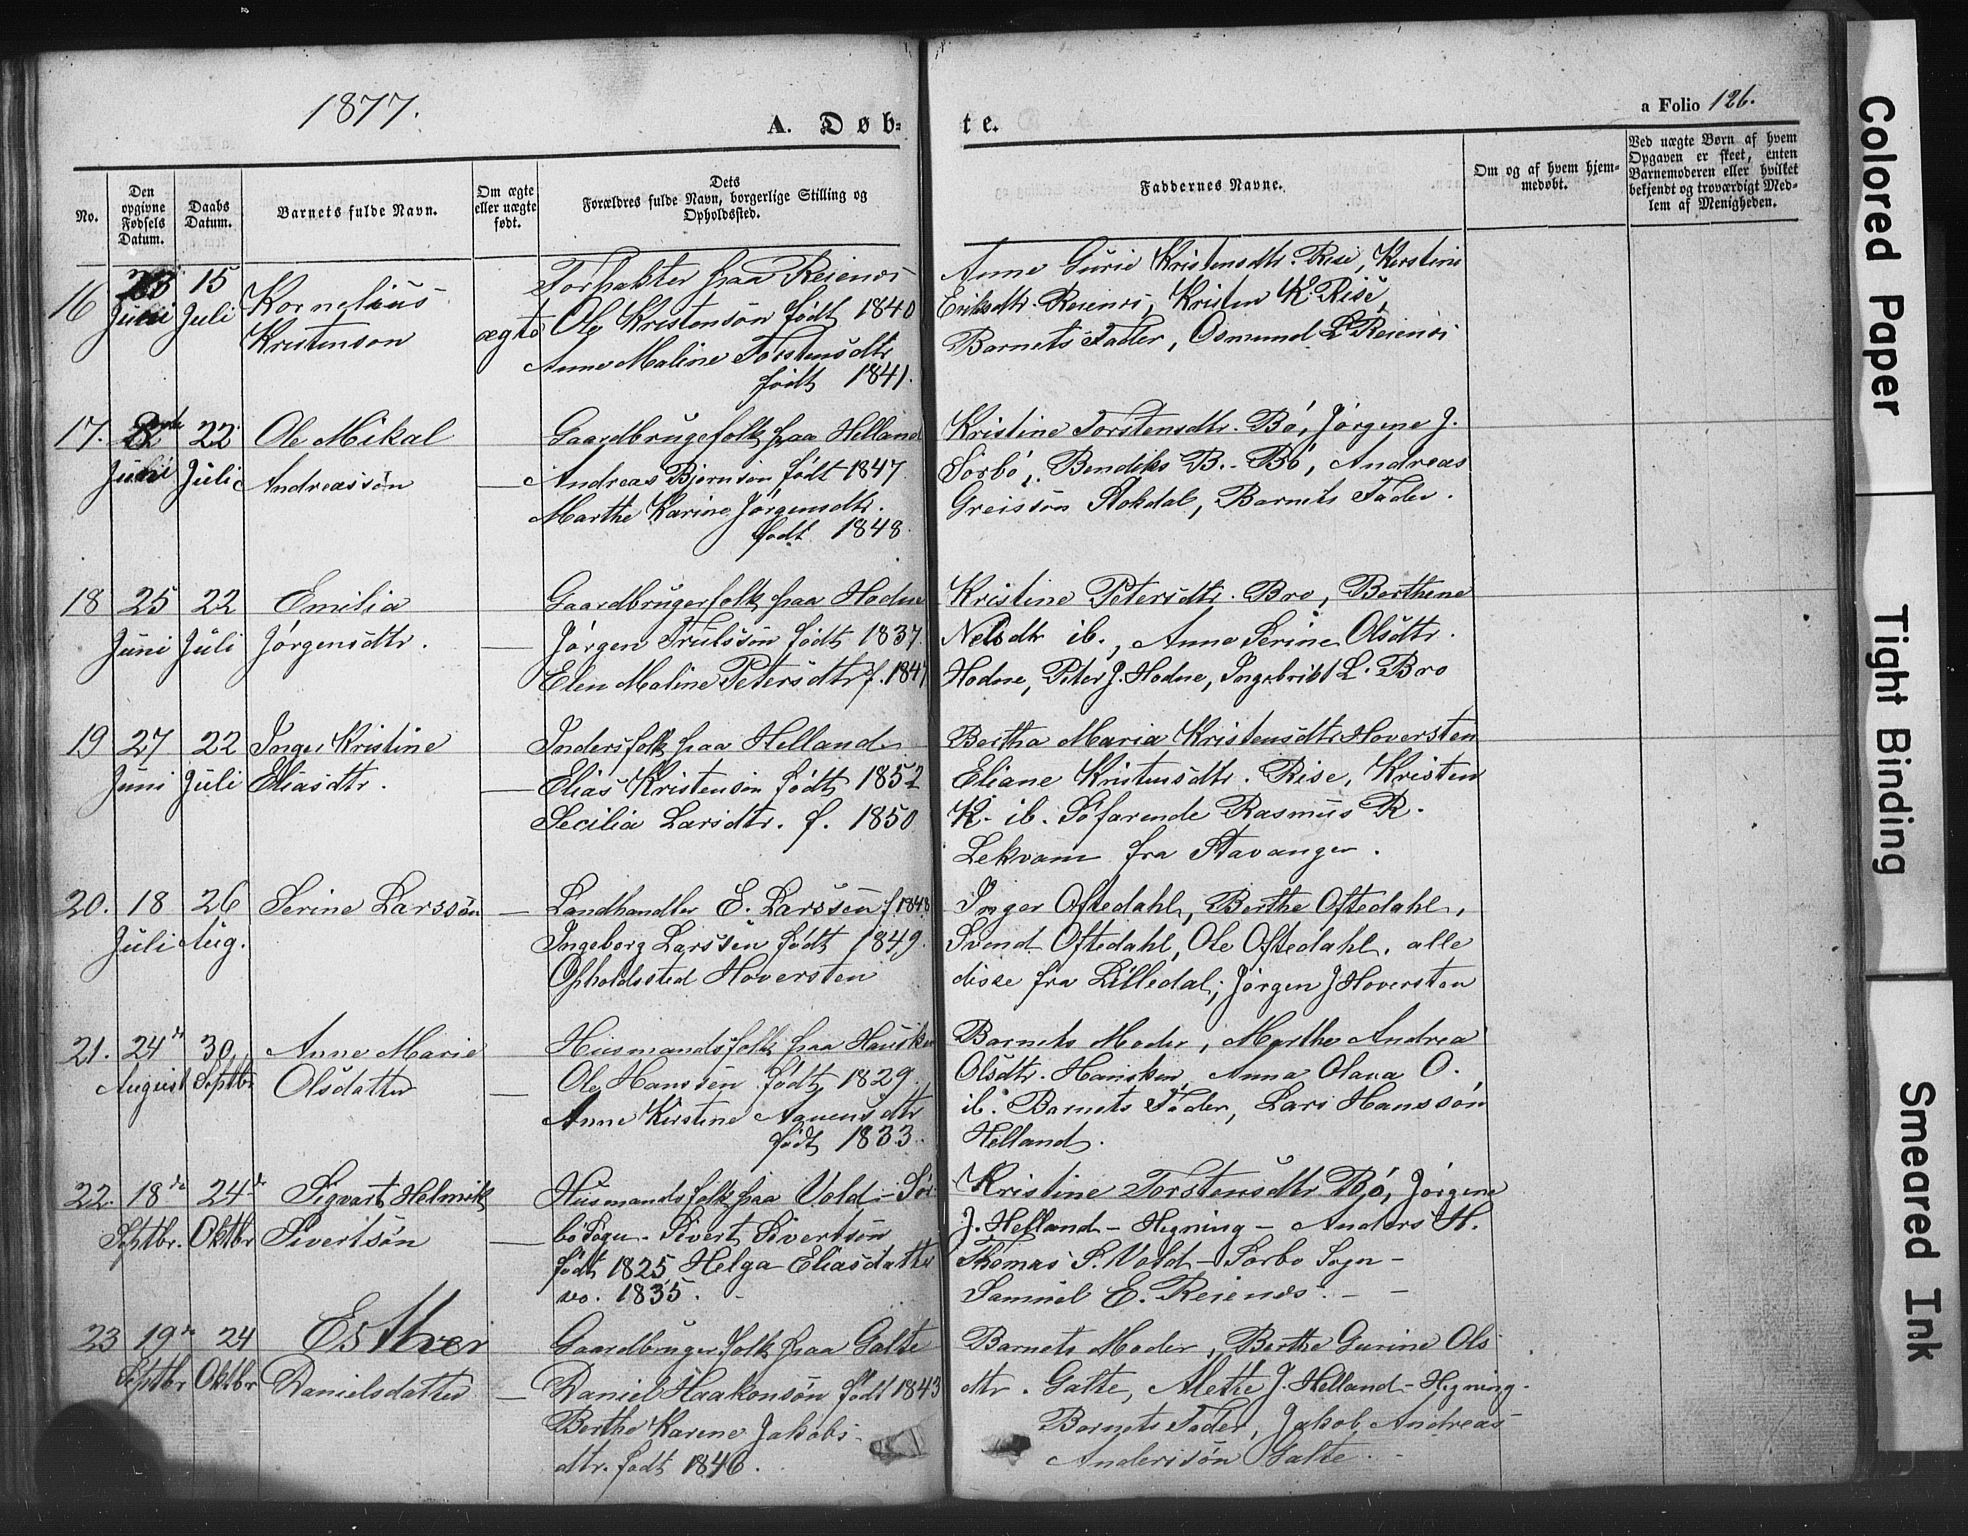 1877.
A. Døb=
te.
a Folio 126.
No.
Den
opgivne
Fødsels
Datum.
Daabs
Datum.
Barnets fulde Navn.
Om ægte
eller uægte
født.
Dets
Forældres fulde Navn, borgerlige Stilling og
Opholdssted.
Faddernes Navne.
Om og af hvem hjem-
medøbt.
Ved uægte Børn af hvem
Opgaven er skeet, enten
Barnemoderen eller hvilket
bekjendt og troværdigt Med-
lem af Menigheden.
16
Juni
15
Juli
Kornelius
Kristenson
ægte
Forpakter paa Reienes
Ole Kristensøn født 1840
Anne Maline Torstensdtr
født 1841.
Anne Gurie Kristensdtr. Rise, Kirstine
Eriksdtr. Reienes, Kristen K. Rise,
Barnets Fader, Osmund L. Reienes
17.
Juni
22
Juli
Ole Mikal
Andreassøn
—
Gaardbrugefolk paa Helland
Andreas Bjørnsøn født 1847.
Marthe Karine Jørgensdtr.
født 1848.
Kristine Torstensdtr. Bø, Jørgene J.
Sørbø, Bendiks B. Bø, Andreas
Greissøn Stokdal, Barnets Fader.
18
25
Juni
22
Juli
Emilia
Jørgensdtr.
—
Gaardbrugerfolk paa Hodne
Jørgen Trulssøn født 1837.
Elen Maline Petersdtr f. 184
Kristine Petersdtr. Bro, Berthine
Nelsdtr ib., Anne Serine Olsdtr.
Hodne, Peter J. Hodne, Ingebrigt L. Bro
19
27
Juni
22
Juli
Inger Kristine
Eliasdtr.
—
Indersfolk paa Helland
Elias Kristensøn født 1852
Secilia Larsdtr. f. 1850
Bertha Maria Kristensdtr Hoversten
Eliane Kristensdtr. Rise, Kristen
K. ib. Søfarende Rasmus R.
Lekvam fra Stavanger.
20.
18
Juli
26
Aug.
Serine Larssøn
—
Landhandler E. Larssen f 1848
Ingeborg Larssen født 1849.
Opholdssted Hoversten
Inger Oftedahl, Berthe Oftedahl,
Svend Oftedahl, Ole Oftedahl, alle
disse fra Lilledal; Jørgen J Hoversten
21.
24de
August
30
Septbr
Anne Marie
Olsdatter
—
Husmandsfolk paa Hausken
Ole Hanssen født 1829.
Anne Kirstine Aanensdtr
født 1833.
Barnets Moder, Marthe Andrea
Olsdtr. Hausken, Anna Olava O.
ib. Barnets Fader, Lars Hanssøn
Helland.
22.
18de
Septbr.
24de
Oktbr
Sigvart Helmik
Sivertsøn
—
Husmandsfolk paa Vold - Sør-
bø Sogn - Sivert Sivertsøn
født 1825, Helga Eliasdatter
do. 1835.
Kristine Torstensdtr Bø, Jørgene
J. Helland - Hegning - Anders H.
Thomas S. Vold - Sørbø Sogn -
Samuel E. Reienes. - -
23
19de
Septbr
24
Oktbr
Esther
Danielsdatter
—
Gaardbrugerfolk paa Galte
Daniel Haakonsøn født 1843
Berthe Karene Jakobs-
dtr. født 1846.
Barnets Moder, Berthe Gurine Ols
dtr. Galte, Alethe J. Helland - Hegning.
Barnets Fader, Jakob Andreas
Anderssøn Galte.
Colored Paper
Tight Binding
Smeared Ink